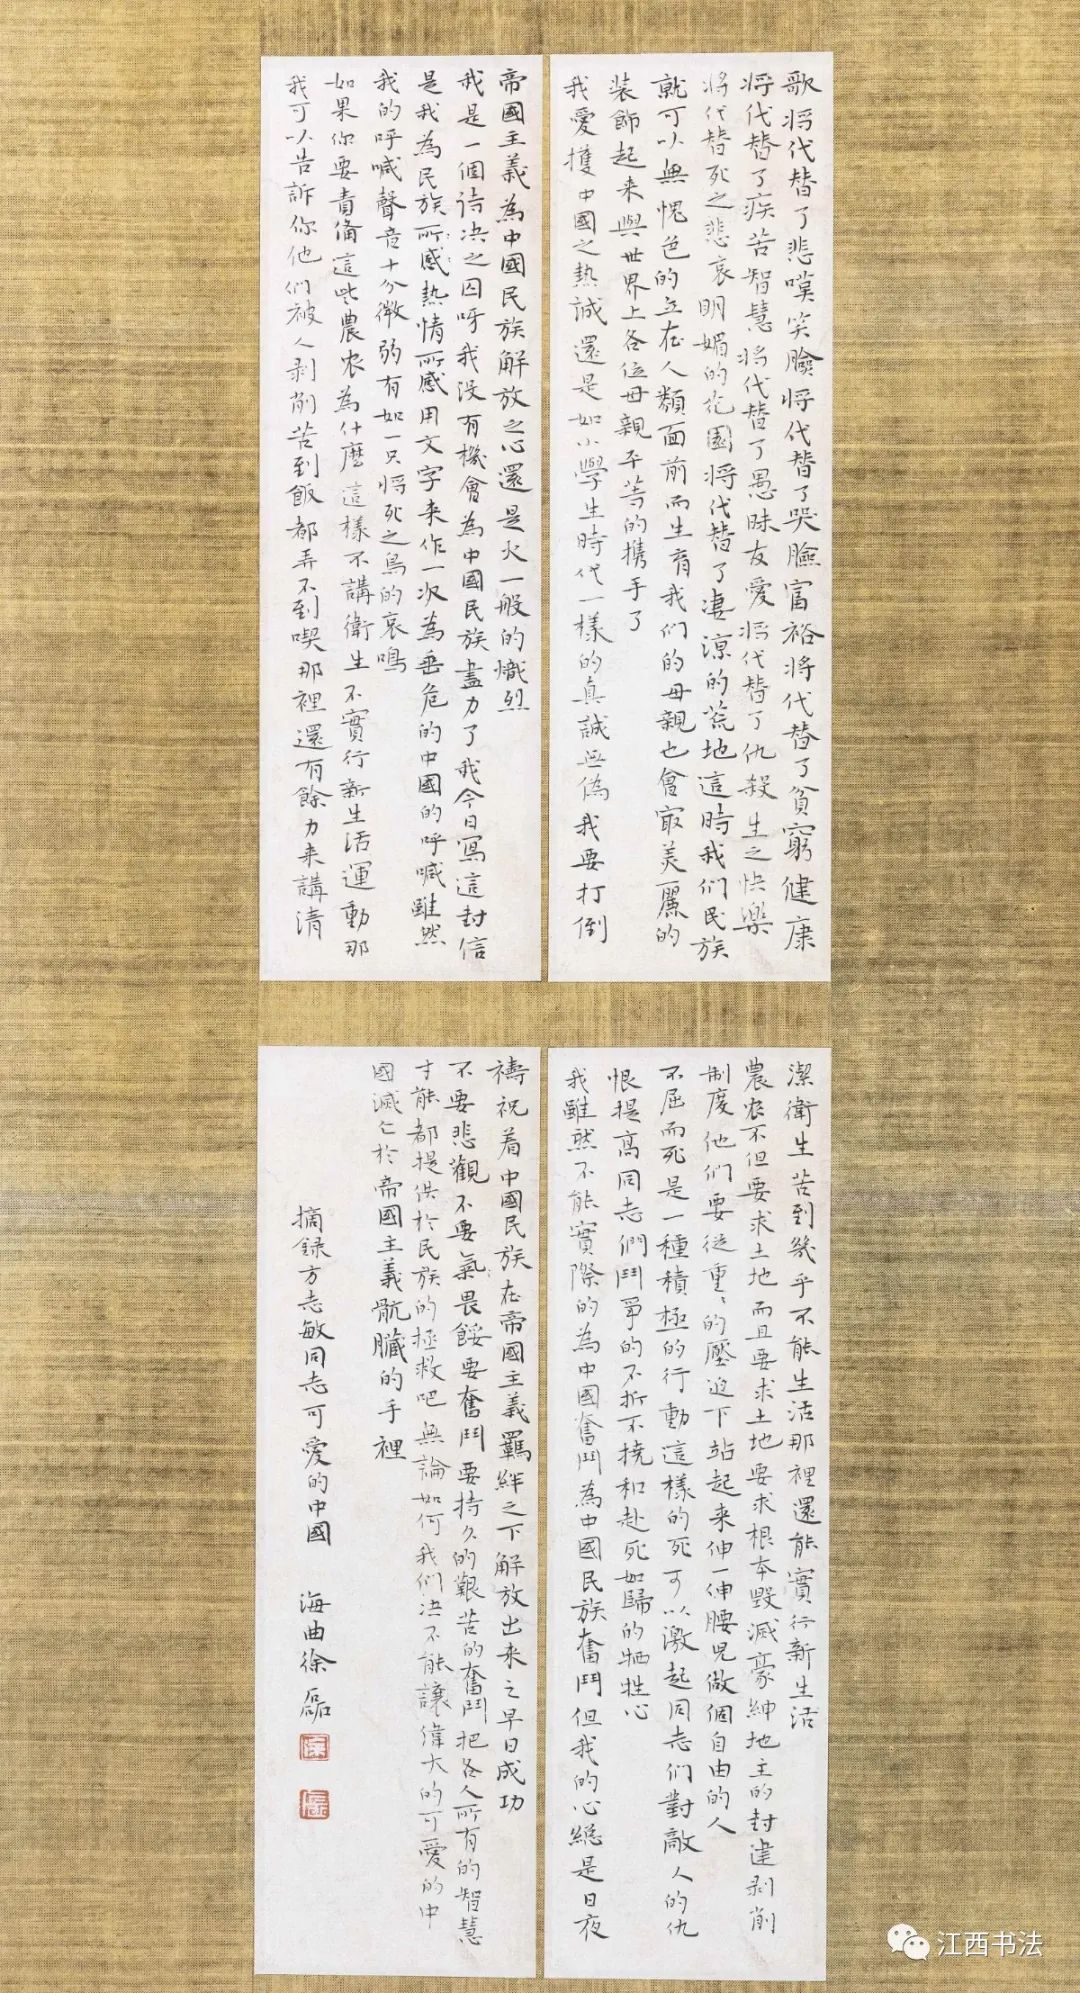 歌将代替了悲嘆笑臉将代替了哭臉富裕将代替了貧窮健康
将代替了疾苦智慧将代替了愚昧友愛将代替了仇殺生之快樂
将代替死之悲哀明媚的花園将代替了凄涼的荒地這時我们民族
就可以無愧色的立在人類面前而生育我们的母親也會最美麗的
装飾起来與世界上各位母親平等的携手了
我愛護中國之熱誠還是如小學生時代一樣的真誠無偽我要打倒
帝國主義為中國民族解放之心還是火一般的熾烈
我是一個待决之囚呀我没有機會為中國民族盡力了我今日寫這封信
是我為民族所感熱情所感用文字来作一次為垂危的中國的呼喊雖然
我的呼喊聲音十分微弱有如一只将死之鳥的哀鳴
如果你要責備這些農农為什麽這樣不講衛生不實行新生活運動那
我可以告訴你他們被人剥削苦到飯都弄不到喫那裡還有餘力来講清
潔衛生苦到幾乎不能生活那裡還能實行新生活
農农不但要求土地而且要求土地要求根本毁滅豪紳地主的封建剥削
制度他们要從重、的壓迫下站起来伸一伸腰兒做個自由的人
不屈而死是一種積極的行動這樣的死可以激起同志们對敵人的仇
恨提高同志們鬥争的不折不撓和赴死如歸的牺牲心
我雖然不能實際的為中國奮鬥為中國民族奮鬥但我的心總是日夜
禱祝着中國民族在帝國主義羈絆之下解放出来之早日成功
不要悲觀不要氣畏餒要奮鬥要持久的艱苦的奮鬥把各人所有的智慧
才能都提供於民族的拯救吧無論如何我们决不能讓偉大的可愛的中
國滅亡於帝國主義骯臟的手裡
摘録方志敏同志可愛的中國
海曲徐磊
江西书法